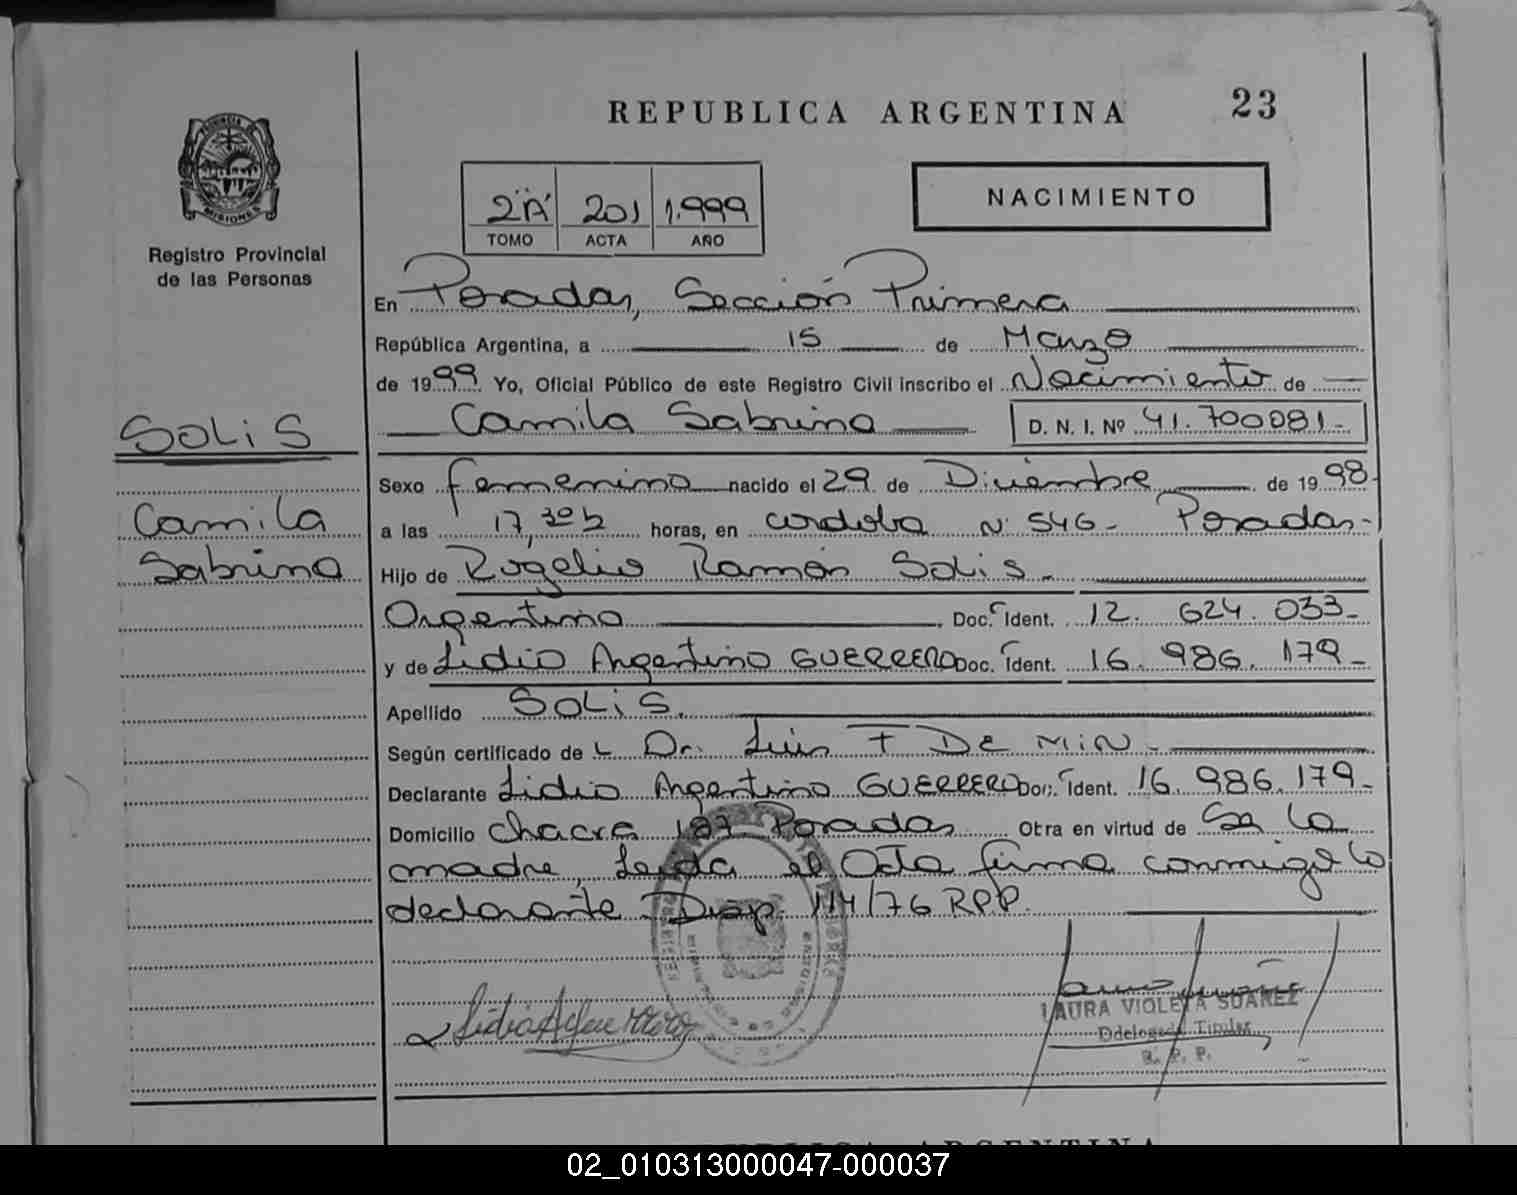 REPUBLICA ARGENTINA
23
PROVINCIA DE
MISIONES
Registro Provincial
de las Personas
2"A" 201 1.999
TOMO ACTA AÑO
NACIMIENTO
En Posadas, Sección Primera
República Argentina, a 15 de Marzo
de 1999 Yo, Oficial Público de este Registro Civil inscribo el Nacimiento de
Camila Sabrina D. N. I. Nº 41.700081-
SOLiS
Camila
Sabrina
Sexo femenino nacido el 29 de Diciembre de 1998-
a las 17,30h horas, en cordoba Nº 546- Posadas-
Hijo de Rogelio Ramón Solis-
Argentino Doc. Ident. 12. 624. 033-
y de Lidia Argentina GUERRERO Doc. Ident. 16. 986. 179-
Apellido SOLiS.
Según certificado de L Dr. Luis F DE MiN-
Declarante Lidia Argentina GUERRERO Doc. Ident. 16. 986. 179-
Domicilio chacra 187 Posadas Obra en virtud de Sa la
madre, Leida el Acta firma conmigo la
declarante. Disp. 114/76 RPP.
Lidia A Guerrero
LAURA VIOLETA SUAREZ
Ddelegada Titular
R. P. P.
REPUBLICA ARGENTINA
02_010313000047-000037